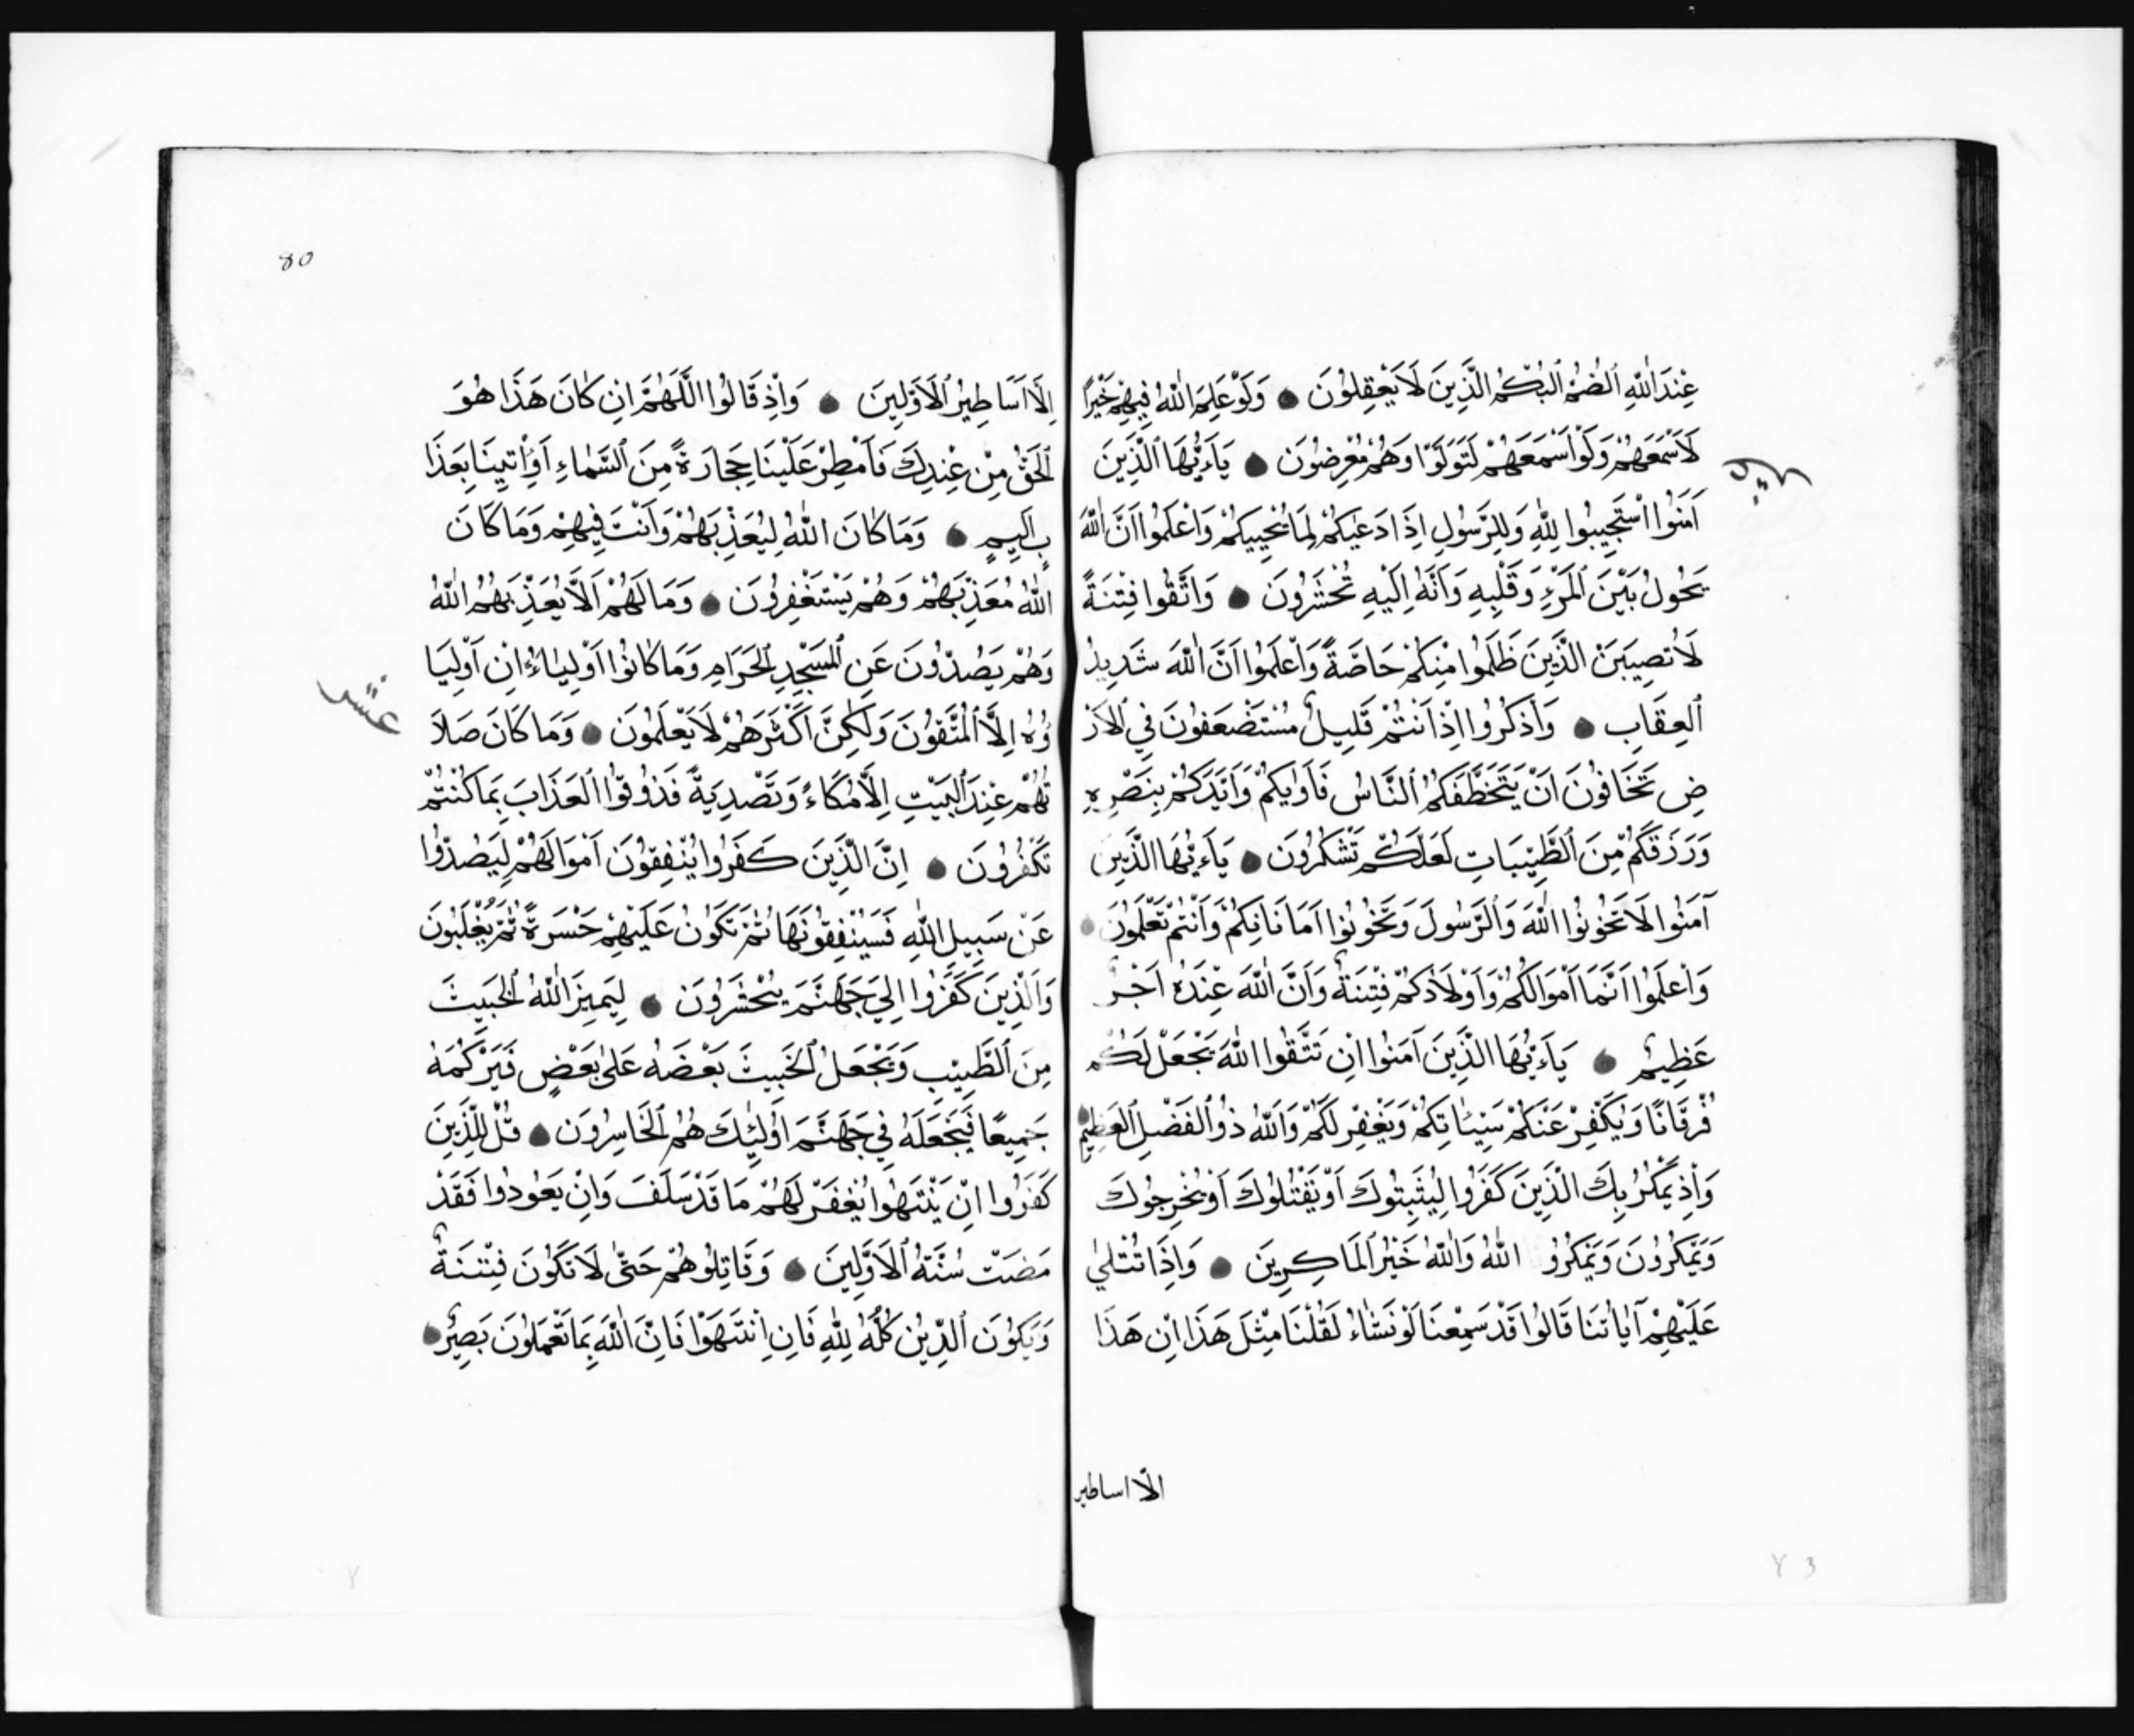 عِنْدَ اللّٰهِ الصُّمُّ الْبُكْمُ الَّذِينَ لَا يَعْقِلُونَ وَلَوْ عَلِمَ اللّٰهُ فِيهِمْ خَيْرًا
لَاَسْمَعَهُمْ وَلَوْ اَسْمَعَهُمْ لَتَوَلَّوْا وَهُمْ مُعْرِضُونَ يَاءَيُّهَا الَّذِينَ
اٰمَنُوا اسْتَجِيبُوا لِلّٰهِ وَلِلرَّسُولِ اِذَا دَعٰيكُمْ لِمَا يُحْيِيكُمْ وَاعْلَمُوا اَنَّ اللّٰهَ
يَحُولُ بَيْنَ الْمَرْءِ وَقَلْبِهِ وَاَنَّهُ اِلَيْهِ تُحْشَرُونَ وَاتَّقُوا فِتْنَةً
لَا تُصِيبَنَّ الَّذِينَ ظَلَمُوا مِنْكُمْ خَاصَّةً وَاعْلَمُوا اَنَّ اللّٰهَ شَدِيدُ
الْعِقَابِ وَاذْكُرُوا اِذْ اَنْتُمْ قَلِيلٌ مُسْتَضْعَفُونَ فِي الْاَرْ
ضِ تَخَافُونَ اَنْ يَتَخَطَّفَكُمُ النَّاسُ فَاٰوٰيكُمْ وَاَيَّدَكُمْ بِنَصْرِهِ
وَرَزَقَكُمْ مِنَ الطَّيِّبَاتِ لَعَلَّكُمْ تَشْكُرُونَ يَاءَيُّهَا الَّذِينَ
آمَنُوا لَا تَخُونُوا اللّٰهَ وَالرَّسُولَ وَتَخُونُوا اَمَانَاتِكُمْ وَاَنْتُمْ تَعْلَمُونَ
وَاعْلَمُوا اَنَّمَا اَمْوَالُكُمْ وَاَوْلَادُكُمْ فِتْنَةٌ وَاَنَّ اللّٰهَ عِنْدَهُ اَجْرٌ
عَظِيمٌ يَاءَيُّهَا الَّذِينَ اٰمَنُوا اِنْ تَتَّقُوا اللّٰهَ يَجْعَلْ لَكُمْ
فُرْقَانًا وَيُكَفِّرْ عَنْكُمْ سَيِّئَاتِكُمْ وَيَغْفِرْ لَكُمْ وَاللّٰهُ ذُو الْفَضْلِ الْعَظِيمِ
وَاِذْ يَمْكُرُ بِكَ الَّذِينَ كَفَرُوا لِيُثْبِتُوكَ اَوْ يَقْتُلُوكَ اَوْ يُخْرِجُوكَ
وَيَمْكُرُونَ وَيَمْكُرُو اللّٰهُ وَاللّٰهُ خَيْرُ الْمَاكِرِينَ وَاِذَا تُتْلٰي
عَلَيْهِمْ آيَاتُنَا قَالُوا قَدْ سَمِعْنَا لَوْ نَشَاءُ لَقُلْنَا مِثْلَ هَذَا اِنْ هَذَا
الّا اساطير
80
اِلَّا اَسَاطِيرُ الْاَوَّلِينَ وَاِذْ قَالُوا اللَّهُمَّ اِنْ كَانَ هَذَا هُوَ
الْحَقَّ مِنْ عِنْدِكَ فَاَمْطِرْ عَلَيْنَا حِجَارَةً مِنَ السَّمَاءِ اَوِ اْتِينَا بِعَذَا
بٍ اَلِيمٍ وَمَا كَانَ اللّٰهُ لِيُعَذِّبَهُمْ وَاَنْتَ فِيهِمْ وَمَا كَانَ
اللّٰهُ مُعَذِّبَهُمْ وَهُمْ يَسْتَغْفِرُونَ وَمَا لَهُمْ اَلَّا يُعَذِّبَهُمُ اللّٰهُ
وَهُمْ يَصُدُّونَ عَنِ الْمَسْجِدِ الْحَرَامِ وَمَا كَانُوا اَوْلِيَاءَهُ اِنْ اَوْلِيَا
ؤُهُ اِلَّا الْمُتَّقُونَ وَلَكِنَّ اَكْثَرَهُمْ لَا يَعْلَمُونَ وَمَا كَانَ صَلَا
عشر
تُهُمْ عِنْدَ الْبَيْتِ اِلَّا مُكَاءً وَتَصْدِيَةً فَذُوقُوا الْعَذَابَ بِمَا كُنْتُمْ
تَكْفُرُونَ اِنَّ الَّذِينَ كَفَرُوا يُنْفِقُونَ اَمْوَالَهُمْ لِيَصُدُّوا
عَنْ سَبِيلِ اللّٰهِ فَسَيُنْفِقُونَهَا ثُمَّ تَكُونُ عَلَيْهِمْ حَسْرَةً ثُمَّ يُغْلَبُونَ
وَالَّذِينَ كَفَرُوا اِلٰي جَهَنَّمَ يُحْشَرُونَ لِيَمِيزَ اللّٰهُ الْخَبِيثَ
مِنَ الطَّيِّبِ وَيَجْعَلَ الْخَبِيثَ بَعْضَهُ عَلٰى بَعْضٍ فَيَرْكُمَهُ
جَمِيعًا فَيَجْعَلَهُ فِي جَهَنَّمَ اُولٰئِكَ هُمُ الْخَاسِرُونَ قُلْ لِلَّذِينَ
كَفَرُوا اِنْ يَنْتَهُوا يُغْفَرْ لَهُمْ مَا قَدْ سَلَفَ وَاِنْ يَعُودُوا فَقَدْ
مَضَتْ سُنَّتُ الْاَوَّلِينَ وَقَاتِلُوهُمْ حَتّٰى لَا تَكُونَ فِتْنَةٌ
وَيَكُونَ الدِّينُ كُلُّهُ لِلّٰهِ فَاِنِ انْتَهَوْا فَاِنَّ اللّٰهَ بِمَا تَعْمَلُونَ بَصِيرٌ